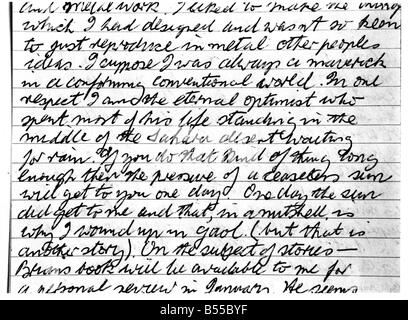 and metal work. I liked to make the things
which I had designed and wasn't so keen
to just reproduce in metal other peoples
ideas. I suppose I was always a maverick
in a conforming conventional world. In one
respect I am the eternal optimist who
spent most of his life standing in the
middle of the Sahara desert waiting
for rain. If you do that kind of thing long
enough then the pressure of a ceaseless sun
will get to you one day. One day the sun
did get to me and that, in a nutshell is
why I wound up in gaol. (but that is
another story). On the subject of stories —
Brians book will be available to me for
a personal review in January. He seems
alamy
www.alamy.com - B55BYF